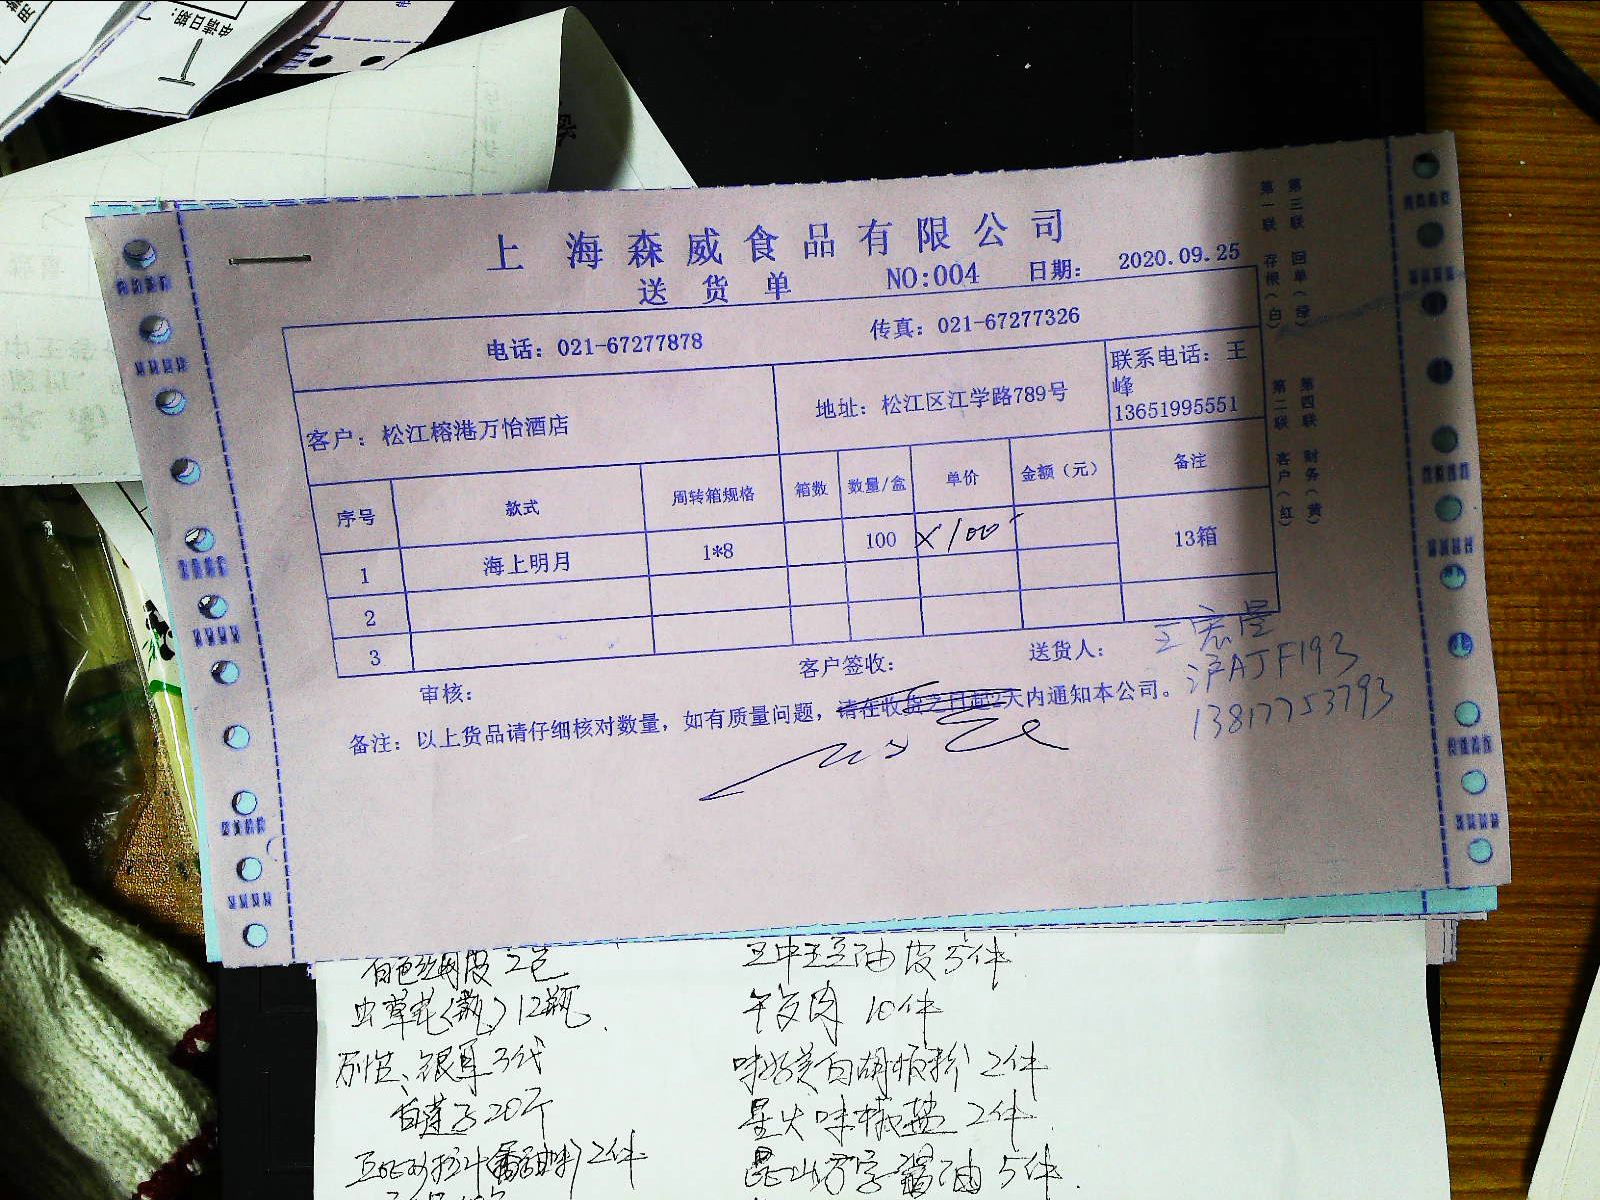 申请日期:
上海森威食品有限公司
送货单 NO:004 日期: 2020.09.25
电话: 021-67277878 传真: 021-67277326
客户: 松江榕港万怡酒店 地址: 松江区江学路789号 联系电话: 王峰 13651995551
序号 款式 周转箱规格 箱数 数量/盒 单价 金额(元) 备注
1 海上明月 1*8 100 ×100 13箱
2
3
审核: 客户签收: 送货人: 王宏星
沪AJF193
13817753793
备注: 以上货品请仔细核对数量, 如有质量问题, 请在收货之日起2天内通知本公司。
第一联 存根(白) 第二联 客户(红)
第三联 回单(绿) 第四联 财务(黄)
王中王豆油皮 5件
虫草花(瓶) 12瓶
午餐肉 10件
银耳 3代
味好美白胡椒粉 2件
白莲子 20斤
星火味椒盐 2件
2件
昆山万字酱油 5件